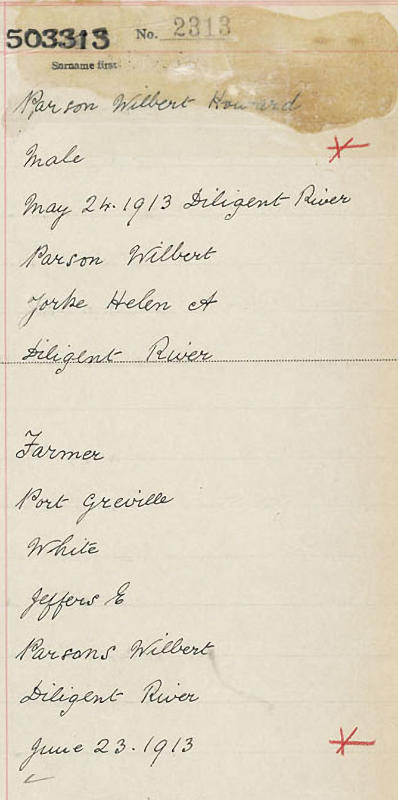 503313 No. 2313
Surname first
Parson Wilbert Howard
Male
May 24.1913 Diligent River
Parson Wilbert
Yorke Helen A
Diligent River
Farmer
Port Greville
White
Jeffers E
Parsons Wilbert
Diligent River
June 23.1913